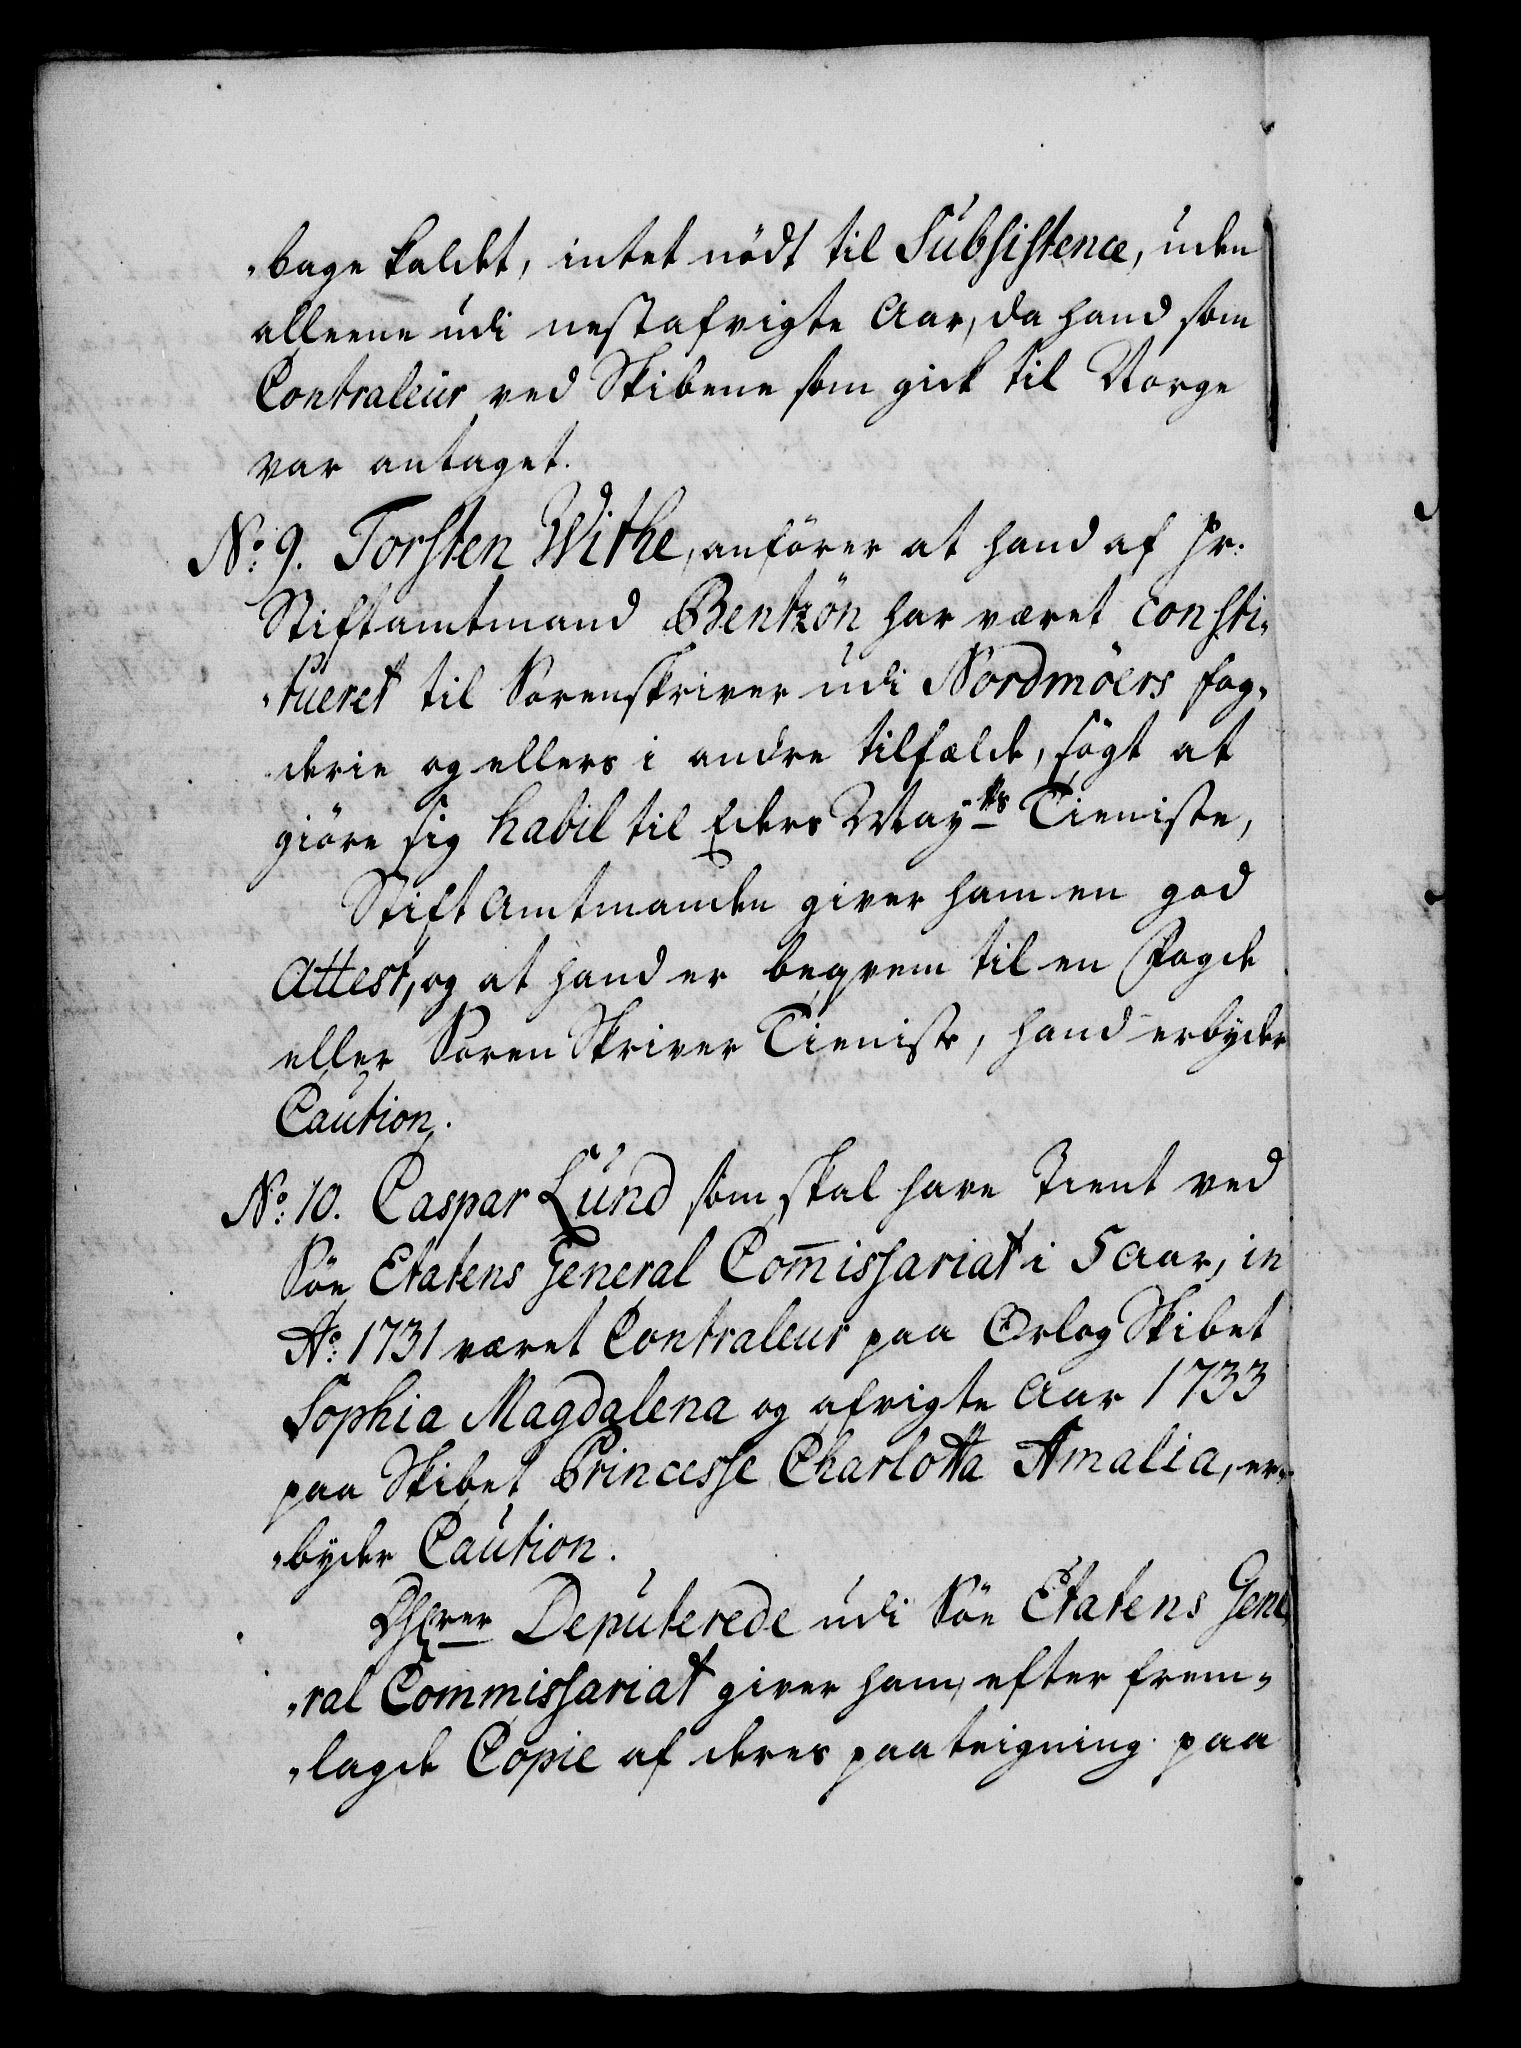 „bage kaldet, intet nödt til Subsistence, uden
alleene udi nestafvigte Aar, da hand som
Contraleur ved Skibene som gick til Norge
var antaget.
No: 9. Torsten Withe, anförer at hand af Hr.
Stiftamtmand Bentzön har været consti„
„tueret til Sorenskriver udi Nordmöers fog„
derie og ellers i andre tilfælde, sögt at
giöre sig habil til Eders Mayts Tieniste,
Stift Amtmanden giver ham en god
Attest, og at hand er beqvem til en Fogde
eller Soren Skriver Tieniste, hand erbyder
Caution.
No: 10. Caspar Lund som skal have Tient ved
Söe Etatens General Com̅issariat i 5 Aar, in
Ao: 1731 været Contraleur paa Orlog Skibet
Sophia Magdalena og afvigte Aar 1733
paa Skibet Princesse Charlotta Amalia, er„
„byder Caution.
DHrrer Deputerede udi Söe Etatens Gene„
„ral Commissariat giver ham, efter frem„
„lagde Copie af deres paateigning paa